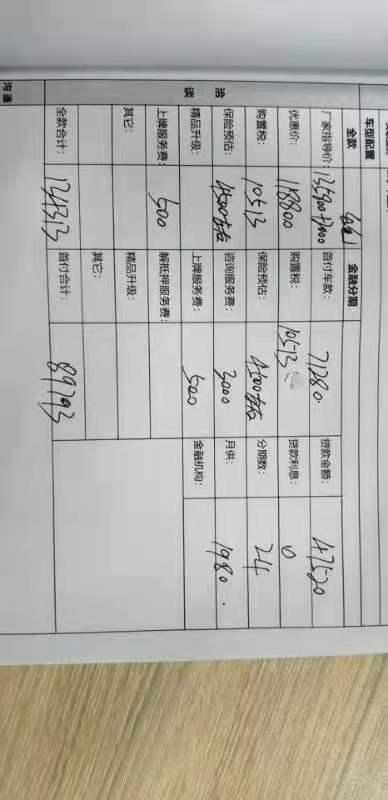 车型配置
全款 金融分期
厂家指导价: 135900+3000 首付车款: 71280. 贷款金额: 47520
优惠价: 118800 购置税: 10513 贷款利息: 0
购置税: 10513 保险预估: 4500左右 分期数: 24
保险预估: 4500左右 咨询服务费: 3000 月供: 1980.
精品升级: 上牌服务费: 500 金融机构:
上牌服务费: 500 解抵押服务费:
其它: 精品升级:
其它:
全款合计: 134313 首付合计: 89793
洽谈
沟通